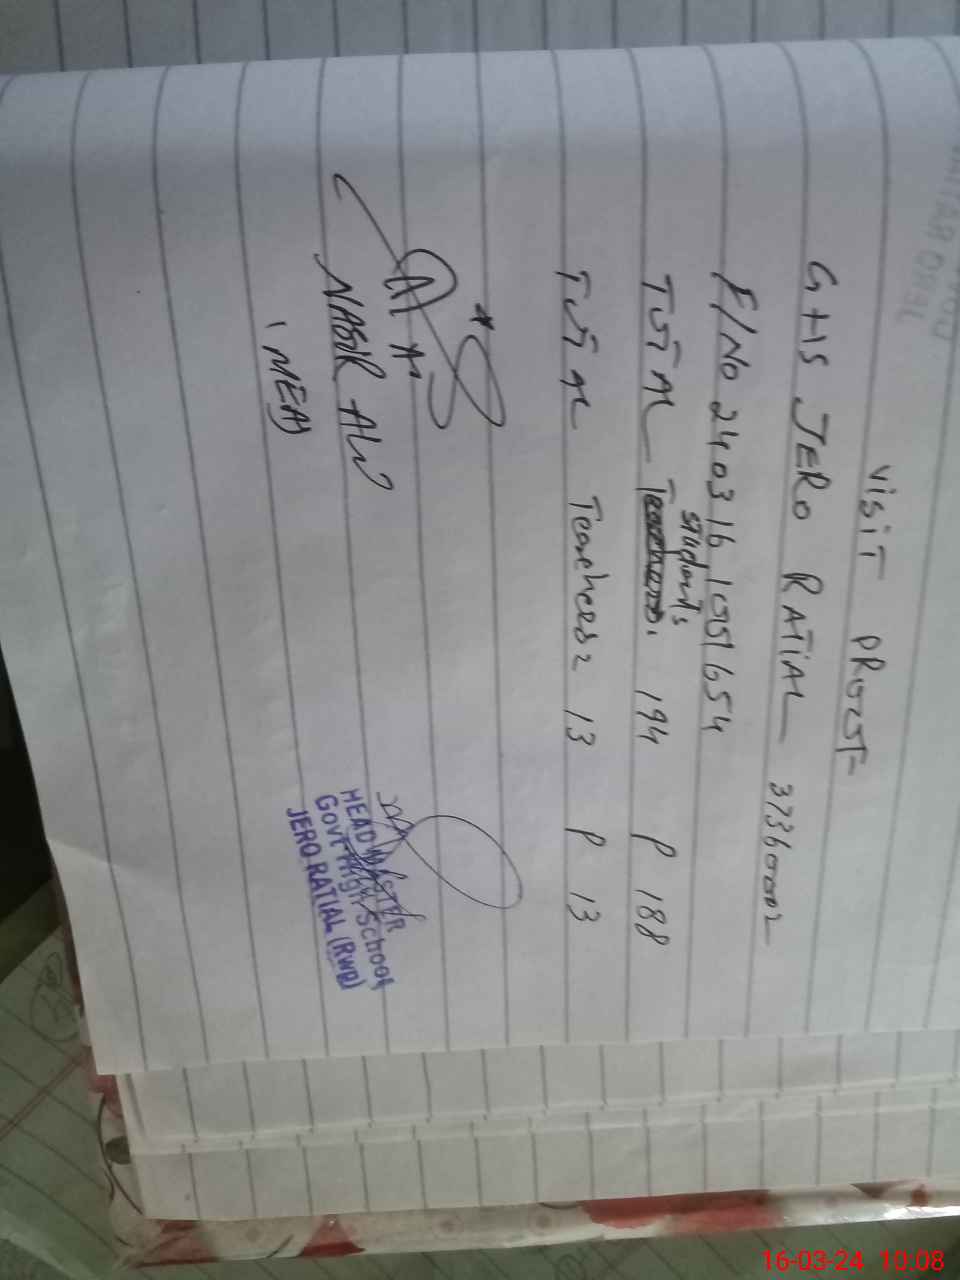 VISIT PROOF
GHS JERO RATIAL 37360002
F/No 2403161001654
TOTAL students 194 P 188
TOTAL Teachers 13 P 13
NASIR ALI
(MEA)
HEAD MASTER
GOVT High School
JERO RATIAL (RWP)
16-03-24 10:08